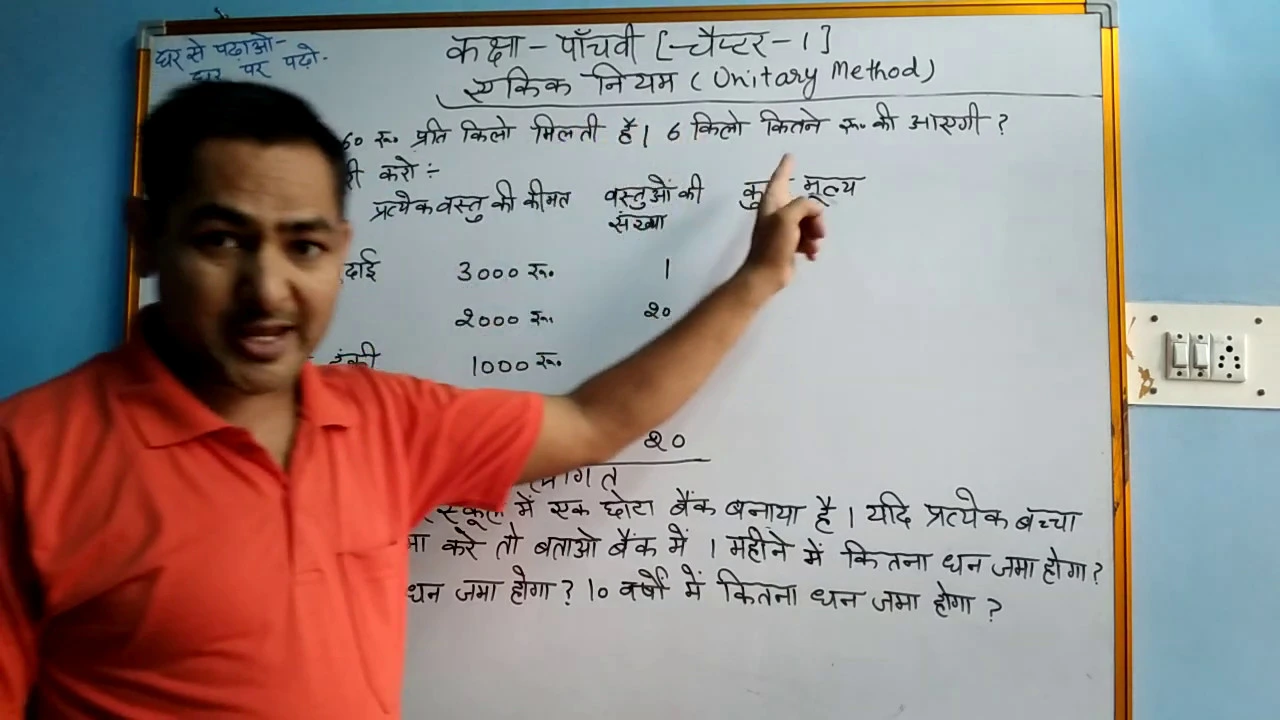 घर से पढाओ-
घर पर पढ़ो.
कक्षा - पाँचवी [-चैप्टर-1]
एकिक नियम (Unitary Method)
60 रू॰ प्रति किलो मिलती है। 6 किलो कितने रू॰ की आएगी ?
करो :-
प्रत्येक वस्तु की कीमत वस्तुओं की संख्या मूल्य
3000 रू॰ 1
2000 रू॰ 20
1000 रू॰
20
स्कूल में एक छोटा बैंक बनाया है। यदि प्रत्येक बच्चा
करे तो बताओ बैंक में 1 महीने में कितना धन जमा होगा?
धन जमा होगा? 10 वर्षों में कितना धन जमा होगा ?